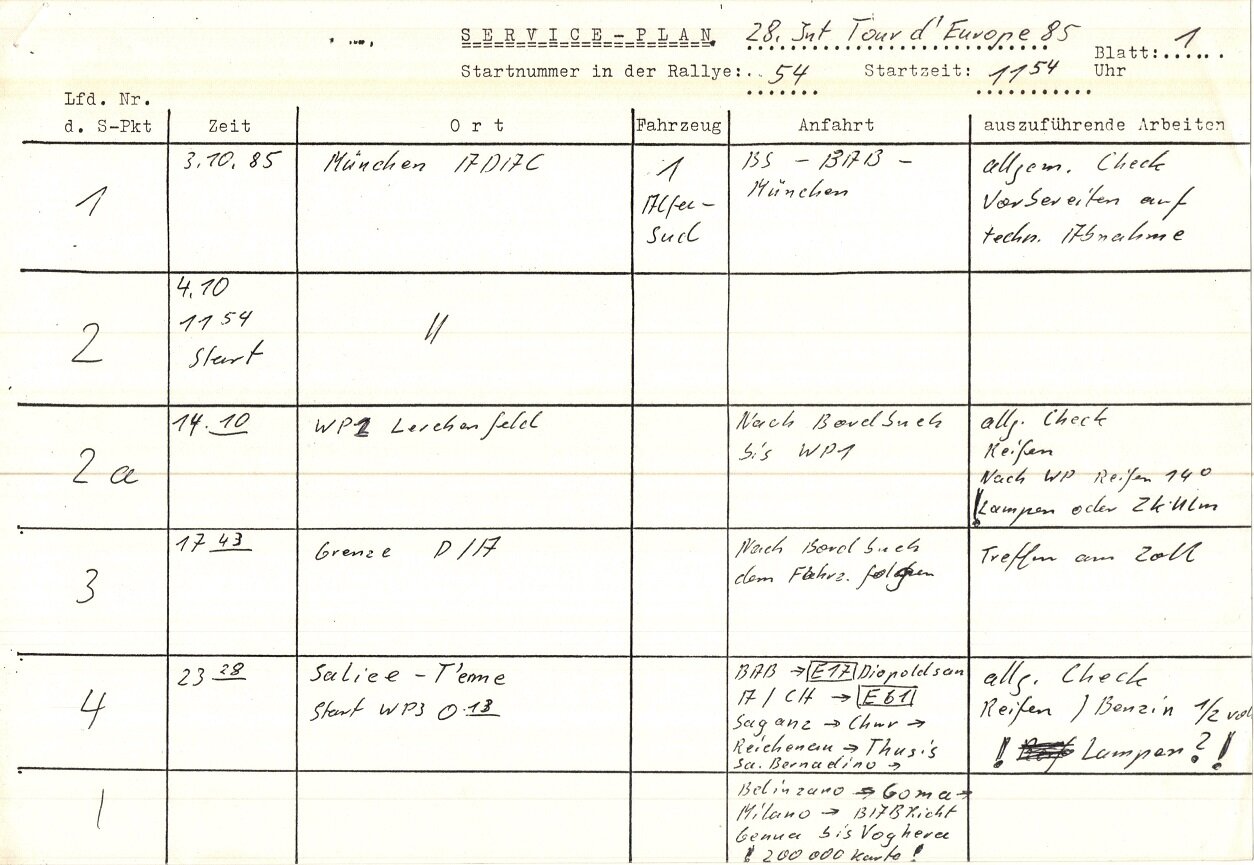 SERVICE-PLAN 28. Int Tour d'Europe 85
Blatt: 1
Startnummer in der Rallye: 54 Startzeit: 11 54 Uhr
Lfd. Nr.
d. S-Pkt Zeit Ort Fahrzeug Anfahrt auszuführende Arbeiten
1
3.10.85
München ADAC
1
Alfa-
Sud
BS - BAB -
München
allgem. Check
Vorbereiten auf
techn. Abnahme
2
4.10
11 54
Start
"
2a
14.10
WP1 Lerchenfeld
Nach Bordbuch
bis WP1
allg. Check
Reifen
Nach WP Reifen 140
! Lampen oder
3
17 43
Grenze D/A
Nach Bordbuch
dem Fahrz. folgen
Treffen am Zoll
4
23 28
Salice - Terme
Start WP3 0.13
BAB → E17 Diopoldsau
A/CH → E61
Saganz → Chur →
Reichenau → Thusis
Sa. Bernadino →
allg. Check
Reifen / Benzin 1/2 voll
! Lampen? !
|
Belinzano → Coma →
Milano → BAB Richt
Genua bis Voghera
! 200 000 Karte !